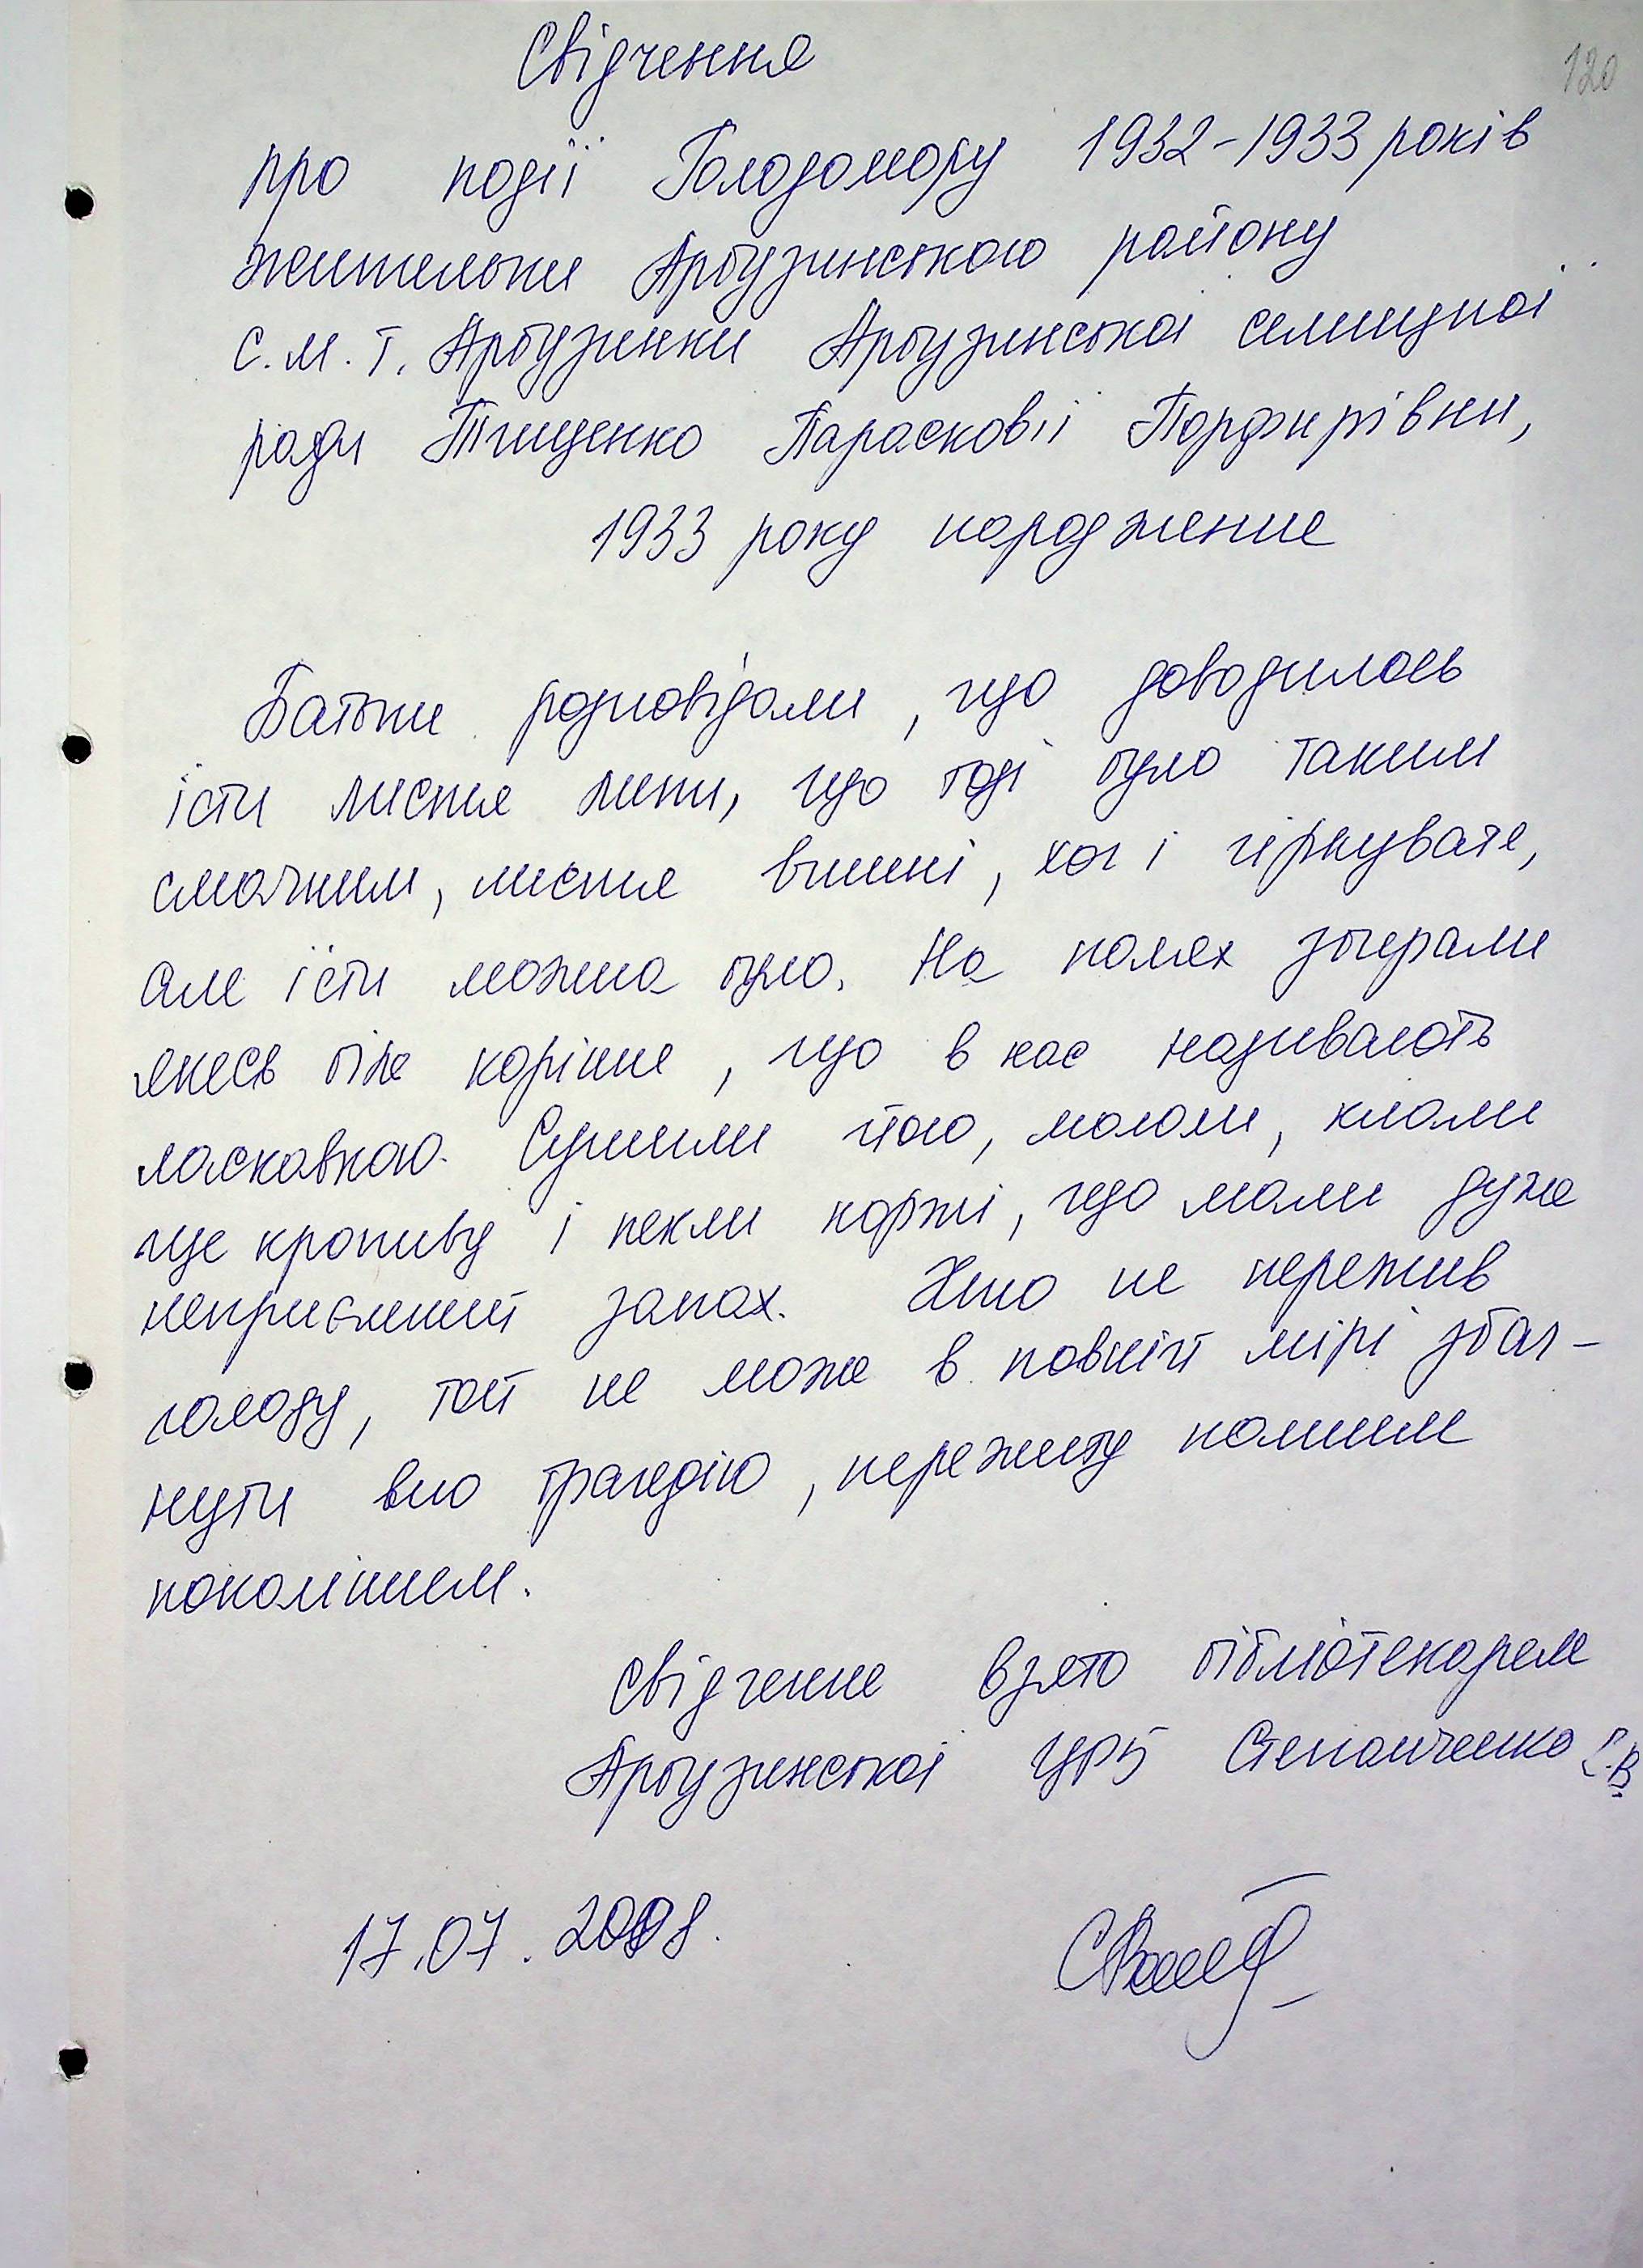 120
Свідчення
про події Голодомору 1932-1933 років
жительки Арбузинського району
с.м.т. Арбузинки Арбузинської селищної
ради Тищенко Парасковії Порфирівни,
1933 року народження
Батьки розповідали, що доводилось
їсти листя липи, що тоді було таким
смачним, листя вишні, хоч і гіркувате,
але їсти можна було. На полях збирали
якесь біле коріння, що в нас називають
ласкавкою. Сушили його, мололи, клали
ще кропиву і пекли коржі, що мали дуже
неприємний запах. Хто не пережив
голоду, той не може в повній мірі збаг-
нути всю трагедію, пережиту нашим
поколінням.
Свідчення взято бібліотекарем
Арбузинської ЦРБ Степанченко С.В.
17.07.2008.